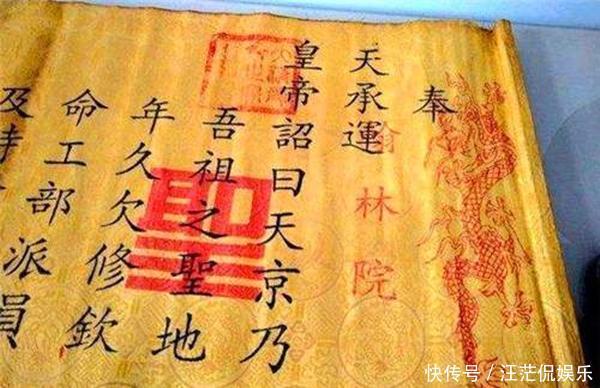 奉
天承運
皇帝詔曰天京乃
吾祖之聖地
年久欠修欽
命工部派員
及
翰林院
聖
快传号／汪茫侃娱乐